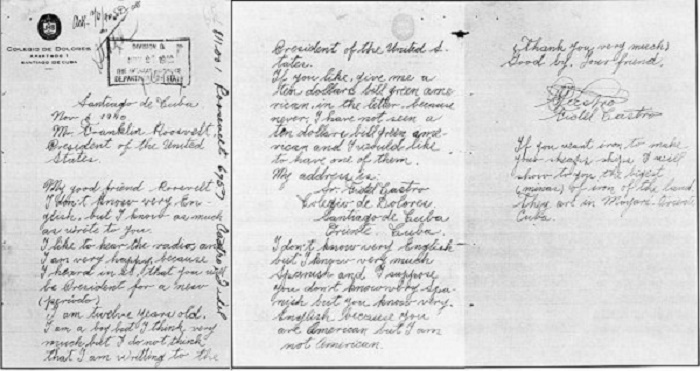 COLEGIO DE DOLORES
APARTADO 1
SANTIAGO DE CUBA
Santiago de Cuba.
Nov 6 1940
Mr Franklin Roosevelt,
President of the United
States.
My good friend Roosevelt
I don't know very En-
glish, but I know as much
as write to you.
I like to hear the radio, and
I am very happy, because
I heard in it, that you will
be President for a new
(periodo)
I am twelve years old.
I am a boy but I think very
much but I do not think
that I am writting to the
President of the United S-
tates.
If you like, give me a
ten dollars bill green ame-
rican, in the letter, because
never, I have not seen a
ten dollars bill green ame-
rican and I would like
to have one of them.
My address is:
Sr. Fidel Castro
Colegio de Dolores.
Santiago de Cuba
Oriente Cuba.
I don't know very English
but I know very much
Spanish and I suppose
you don't know very Spa-
nish but you know very
English because you
are American but I am
not American.
(Thank you very much)
Good by. Your friend,
Castro
Fidel Castro
If you want iron to make
your ships I will
show to you the bigest
(minas) of iron of the land
They are in Mayari Oriente
Cuba.